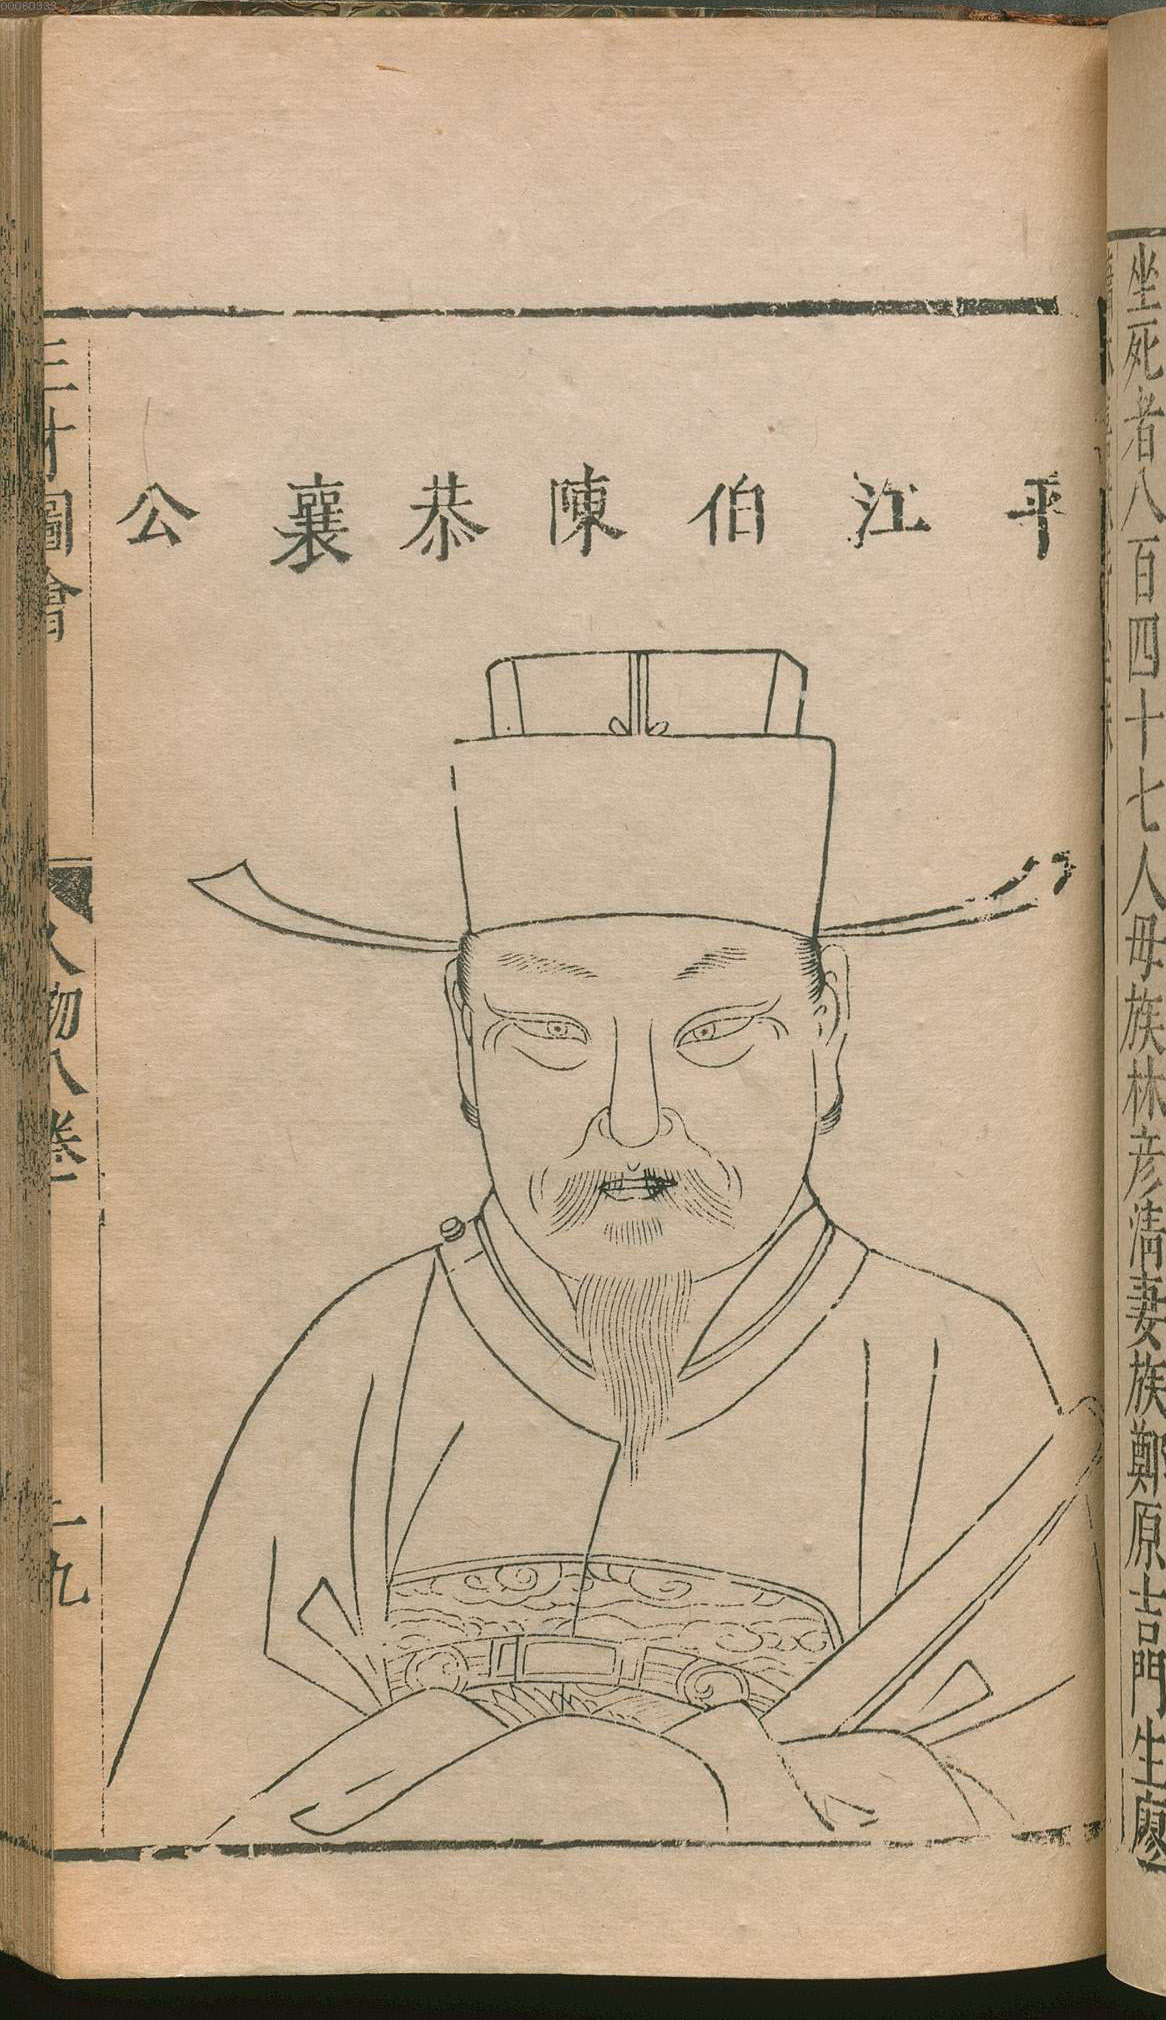 坐死者八百四十七人母族林彥清妻族鄭原吉門生廖
平江伯陳恭襄公
三才圖會
人物八卷
二九
00080333